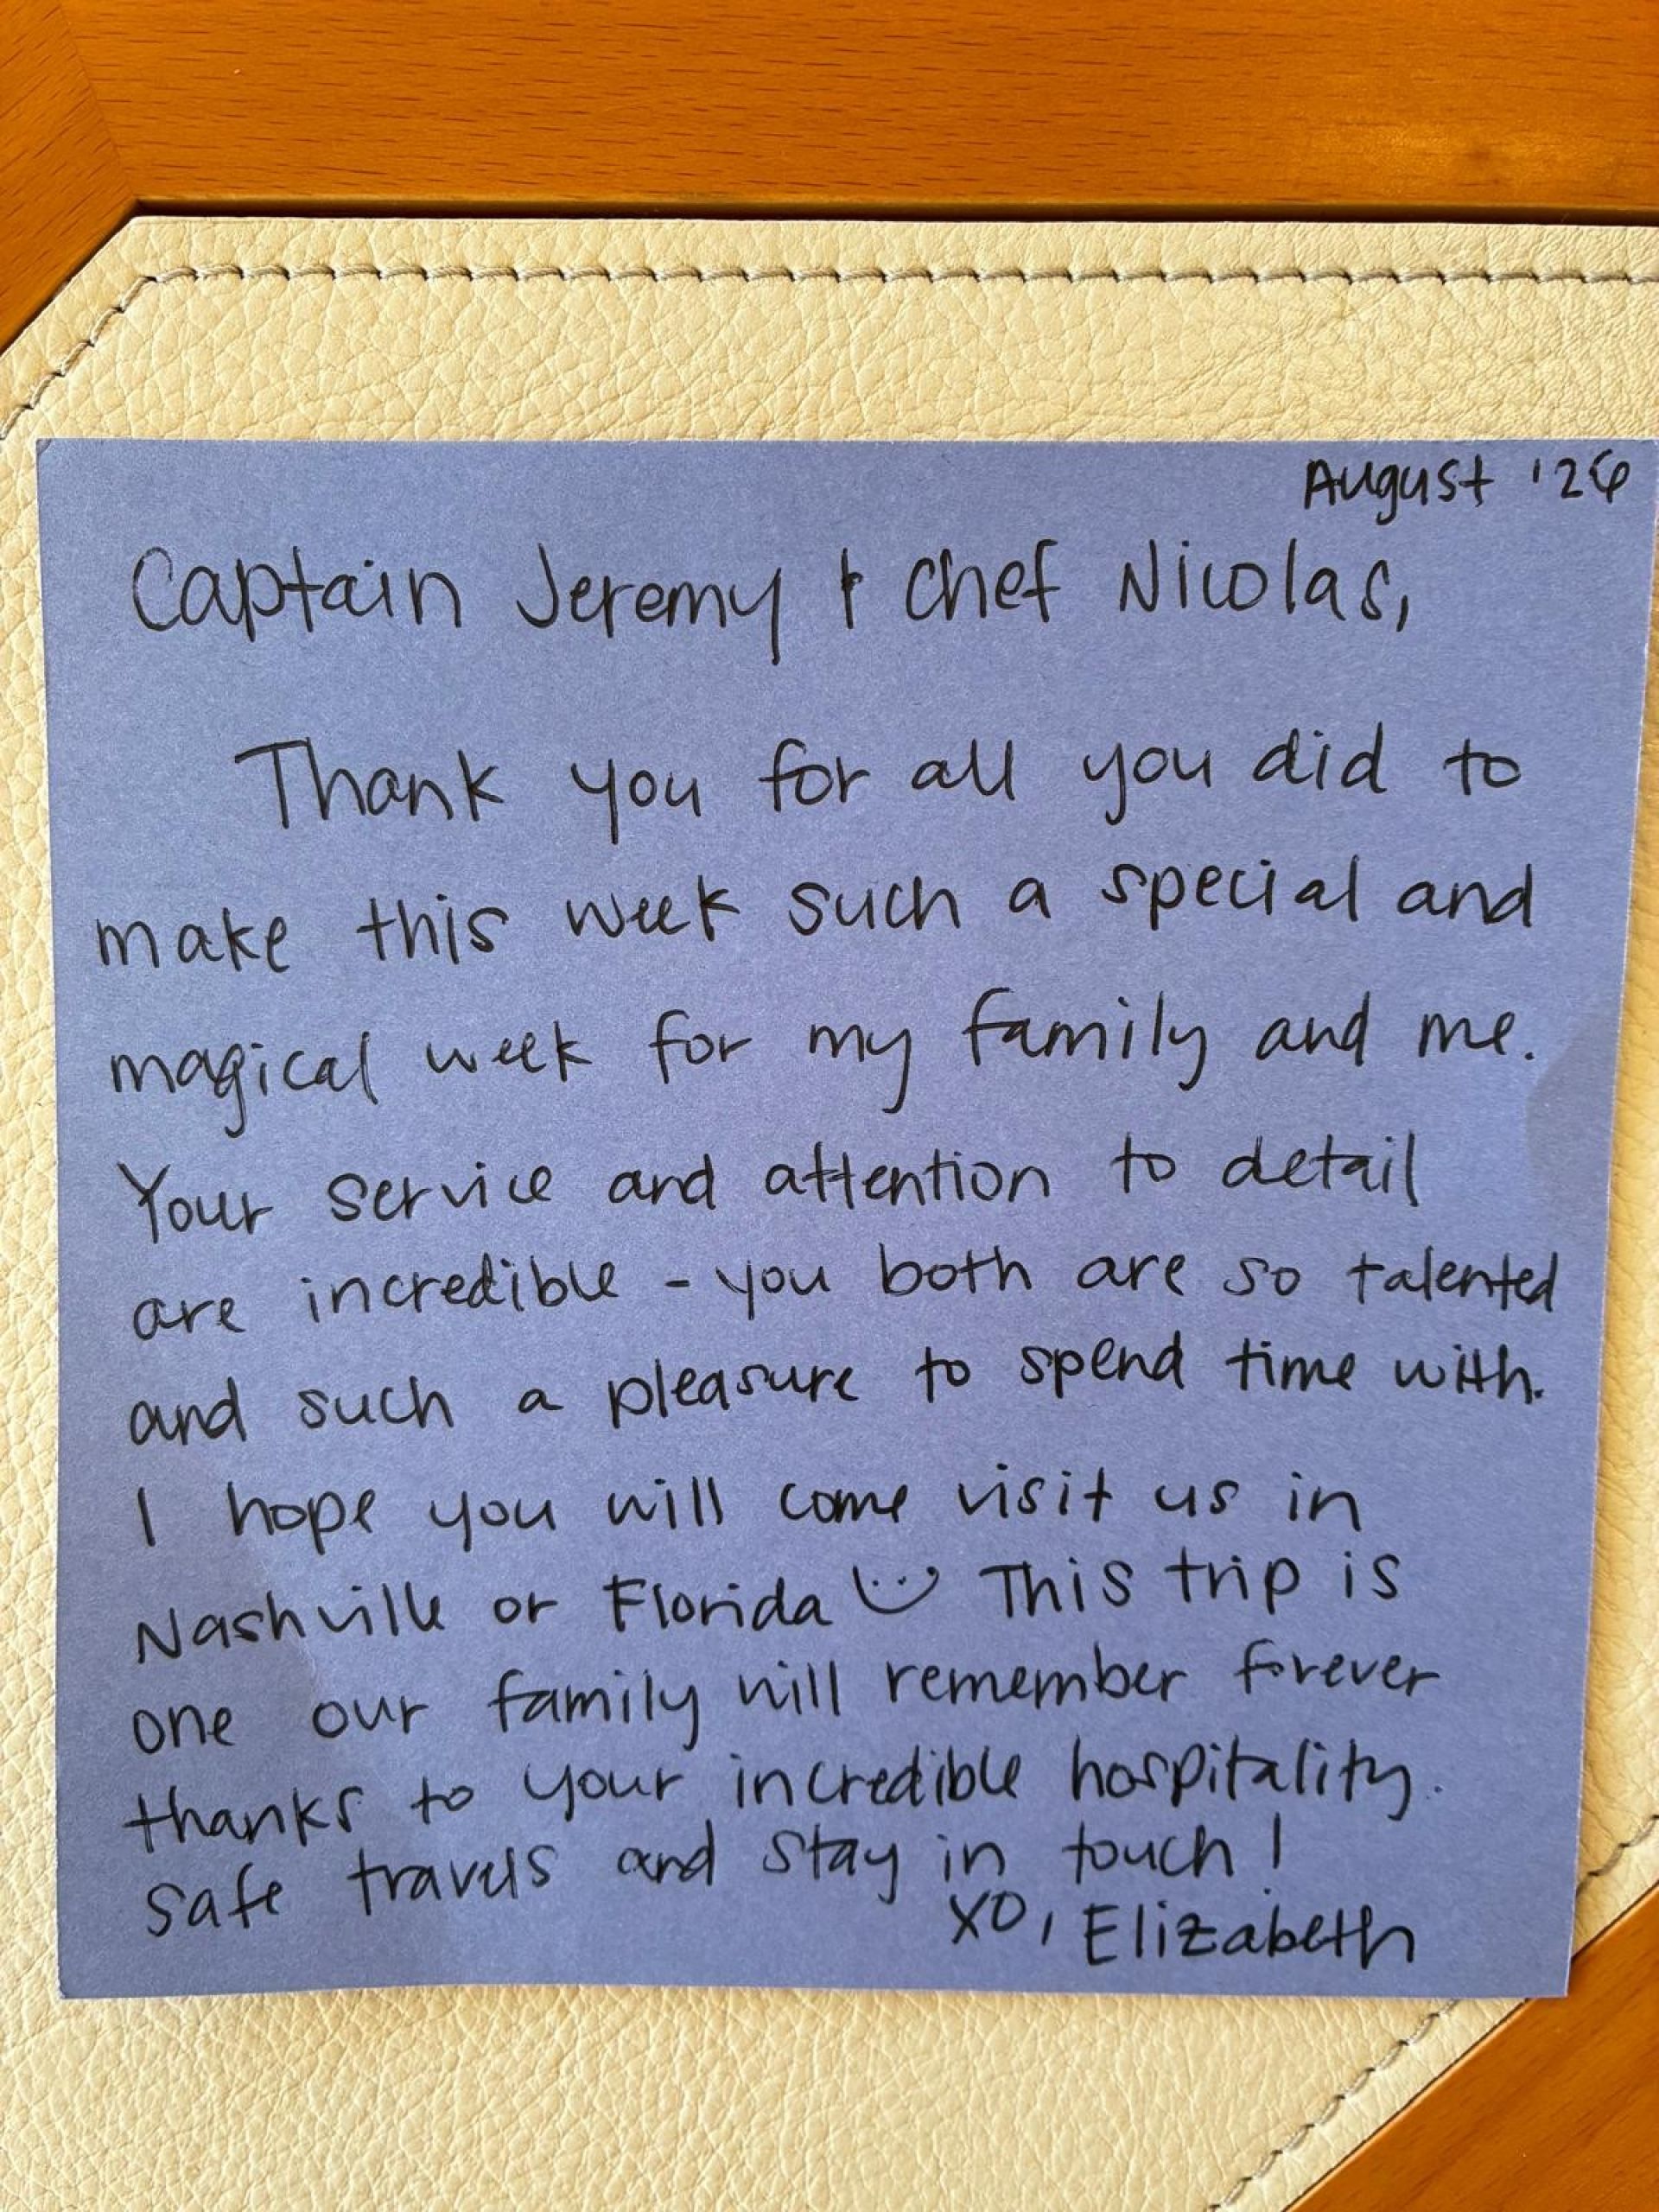 August '26
Captain Jeremy & Chef Nicolas,
Thank you for all you did to
make this week such a special and
magical week for my family and me.
Your service and attention to detail
are incredible - you both are so talented
and such a pleasure to spend time with.
I hope you will come visit us in
Nashville or Florida This trip is
one our family will remember forever
thanks to your incredible hospitality.
Safe travels and stay in touch!
XO, Elizabeth